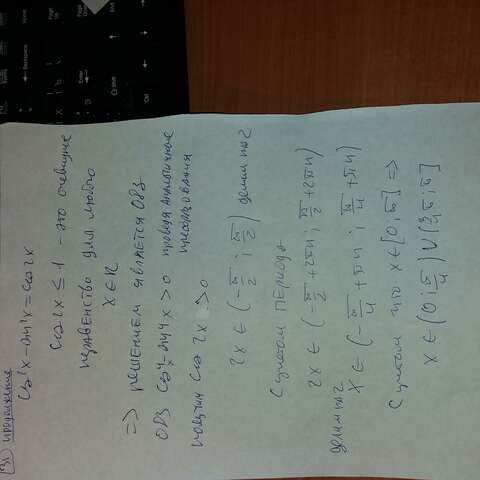 31 продолжение
cos⁴x - sin⁴x = cos2x
cos2x ≤ 1 - это очевидное
неравенство для любого
x ∈ R
=> решением является ОВЗ
ОВЗ cos⁴x - sin⁴x > 0 проведя аналогичные
преобразования
получим cos 2x > 0
2x ∈ (-π/2 ; π/2) делим на 2
С учетом периода
2x ∈ (-π/2 + 2πn ; π/2 + 2πn)
делим на 2
x ∈ (-π/4 + πn ; π/4 + πn)
С учетом что x ∈ [0; π] =>
x ∈ (0; π/4) ∪ (3/4 π; π]